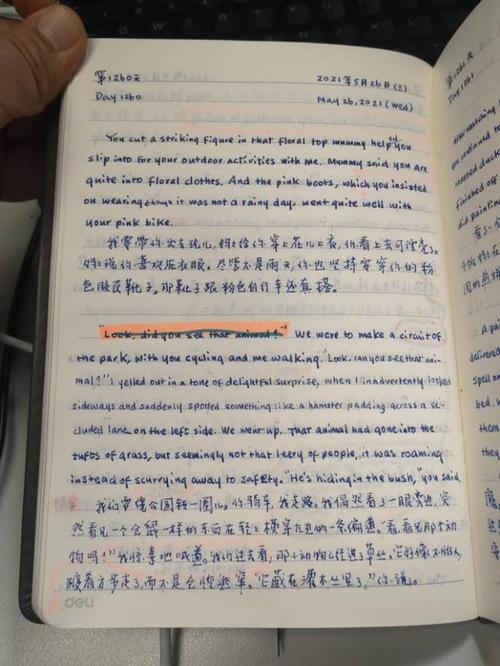 第1260天 2021年5月26日(三)
Day 1260 May 26, 2021 (Wed)
You cut a striking figure in that floral top mummy helped you
slip into for your outdoor activities with me. Mummy said you are
quite into floral clothes. And the pink boots, which you insisted
on wearing though it was not a rainy day, went quite well with
your pink bike.
我要带你出去玩儿,妈妈给你穿上花儿上衣,你看上去可漂亮了。
妈妈说你喜欢花衣服。尽管不是雨天,你也坚持要穿你的粉
色胶皮靴子。那靴子跟粉色自行车还真搭。
"Look, did you see that animal?" We were to make a circuit of
the park, with you cycling and me walking. "Look, can you see that ani-
mal?" I yelled out in a tone of delightful surprise, when I inadvertently looked
sideways and suddenly spotted something like a hamster padding across a se-
cluded lane on the left side. We went up. That animal had gone into the
tufts of grass, but seemingly not that leery of people, it was roaming
instead of scurrying away to safety. "He's hiding in the bush," you said.
我们要绕公园转一圈儿,你骑车,我走路。我偶然看了一眼旁边,突
然看见一个仓鼠一样的东西在轻轻横穿左边的一条偏道。"看,看见那个动
物吗?"我惊喜地喊道。我们过去看,那小动物已经进了草丛。它好像不怕人,
踱着方步走了,而不是仓惶逃窜。"它藏在灌木丛里了,"你说。
deli
第1261天
Day 1261